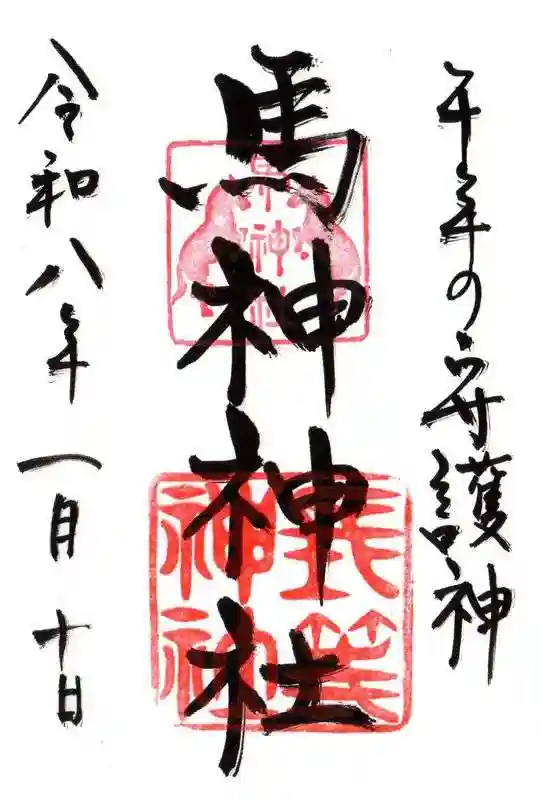 午年の守護神
馬神神社
令和八年一月十日
神社